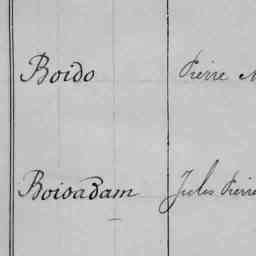 Boido Pierre M
Boisadam Jules Pierre